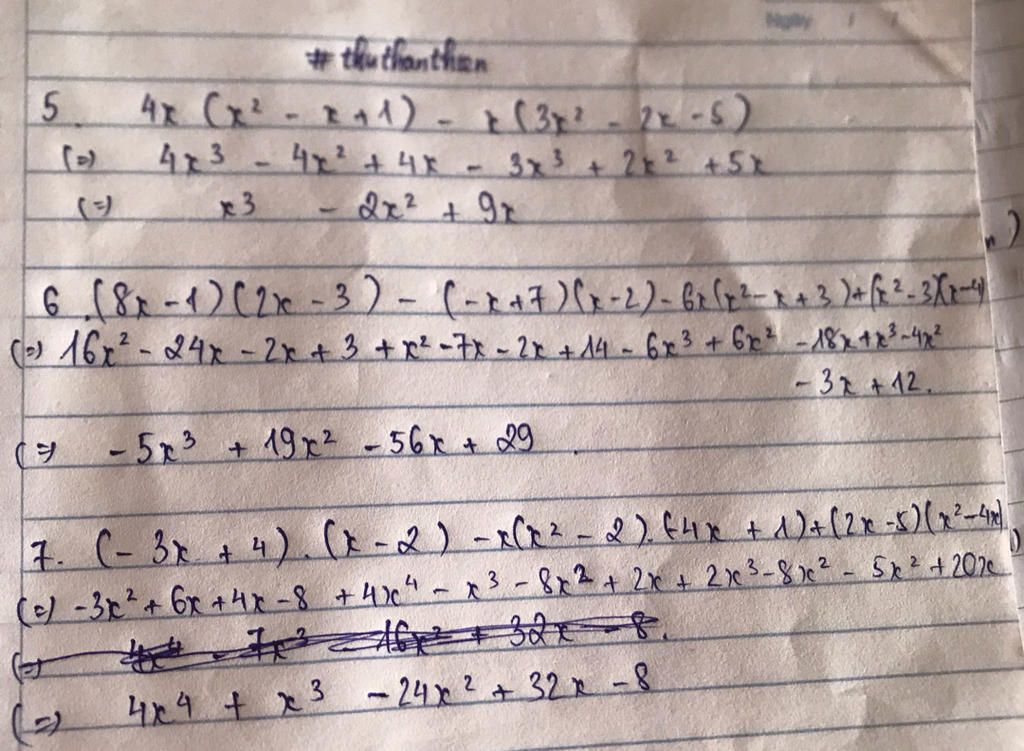 Ngày / /
# thuthanthan
5. 4x (x² - x + 1) - x (3x² - 2x - 5)
(=) 4x³ - 4x² + 4x - 3x³ + 2x² + 5x
(=) x³ - 2x² + 9x
6. (8x - 1) (2x - 3) - (-x + 7) (x - 2) - 6x (x² - x + 3) + (x² - 3)(x - 4)
(=) 16x² - 24x - 2x + 3 + x² - 7x - 2x + 14 - 6x³ + 6x² - 18x + x³ - 4x²
- 3x + 12.
(=) - 5x³ + 19x² - 56x + 29.
7. (- 3x + 4) . (x - 2) - x(x² - 2). (-4x + 1) + (2x - 5) (x² - 4x)
(=) - 3x² + 6x + 4x - 8 + 4x⁴ - x³ - 8x² + 2x + 2x³ - 8x² - 5x² + 20x
(=) 4x⁴ - 7x³ - 16x² + 32x - 8.
(=) 4x⁴ + x³ - 24x² + 32x - 8